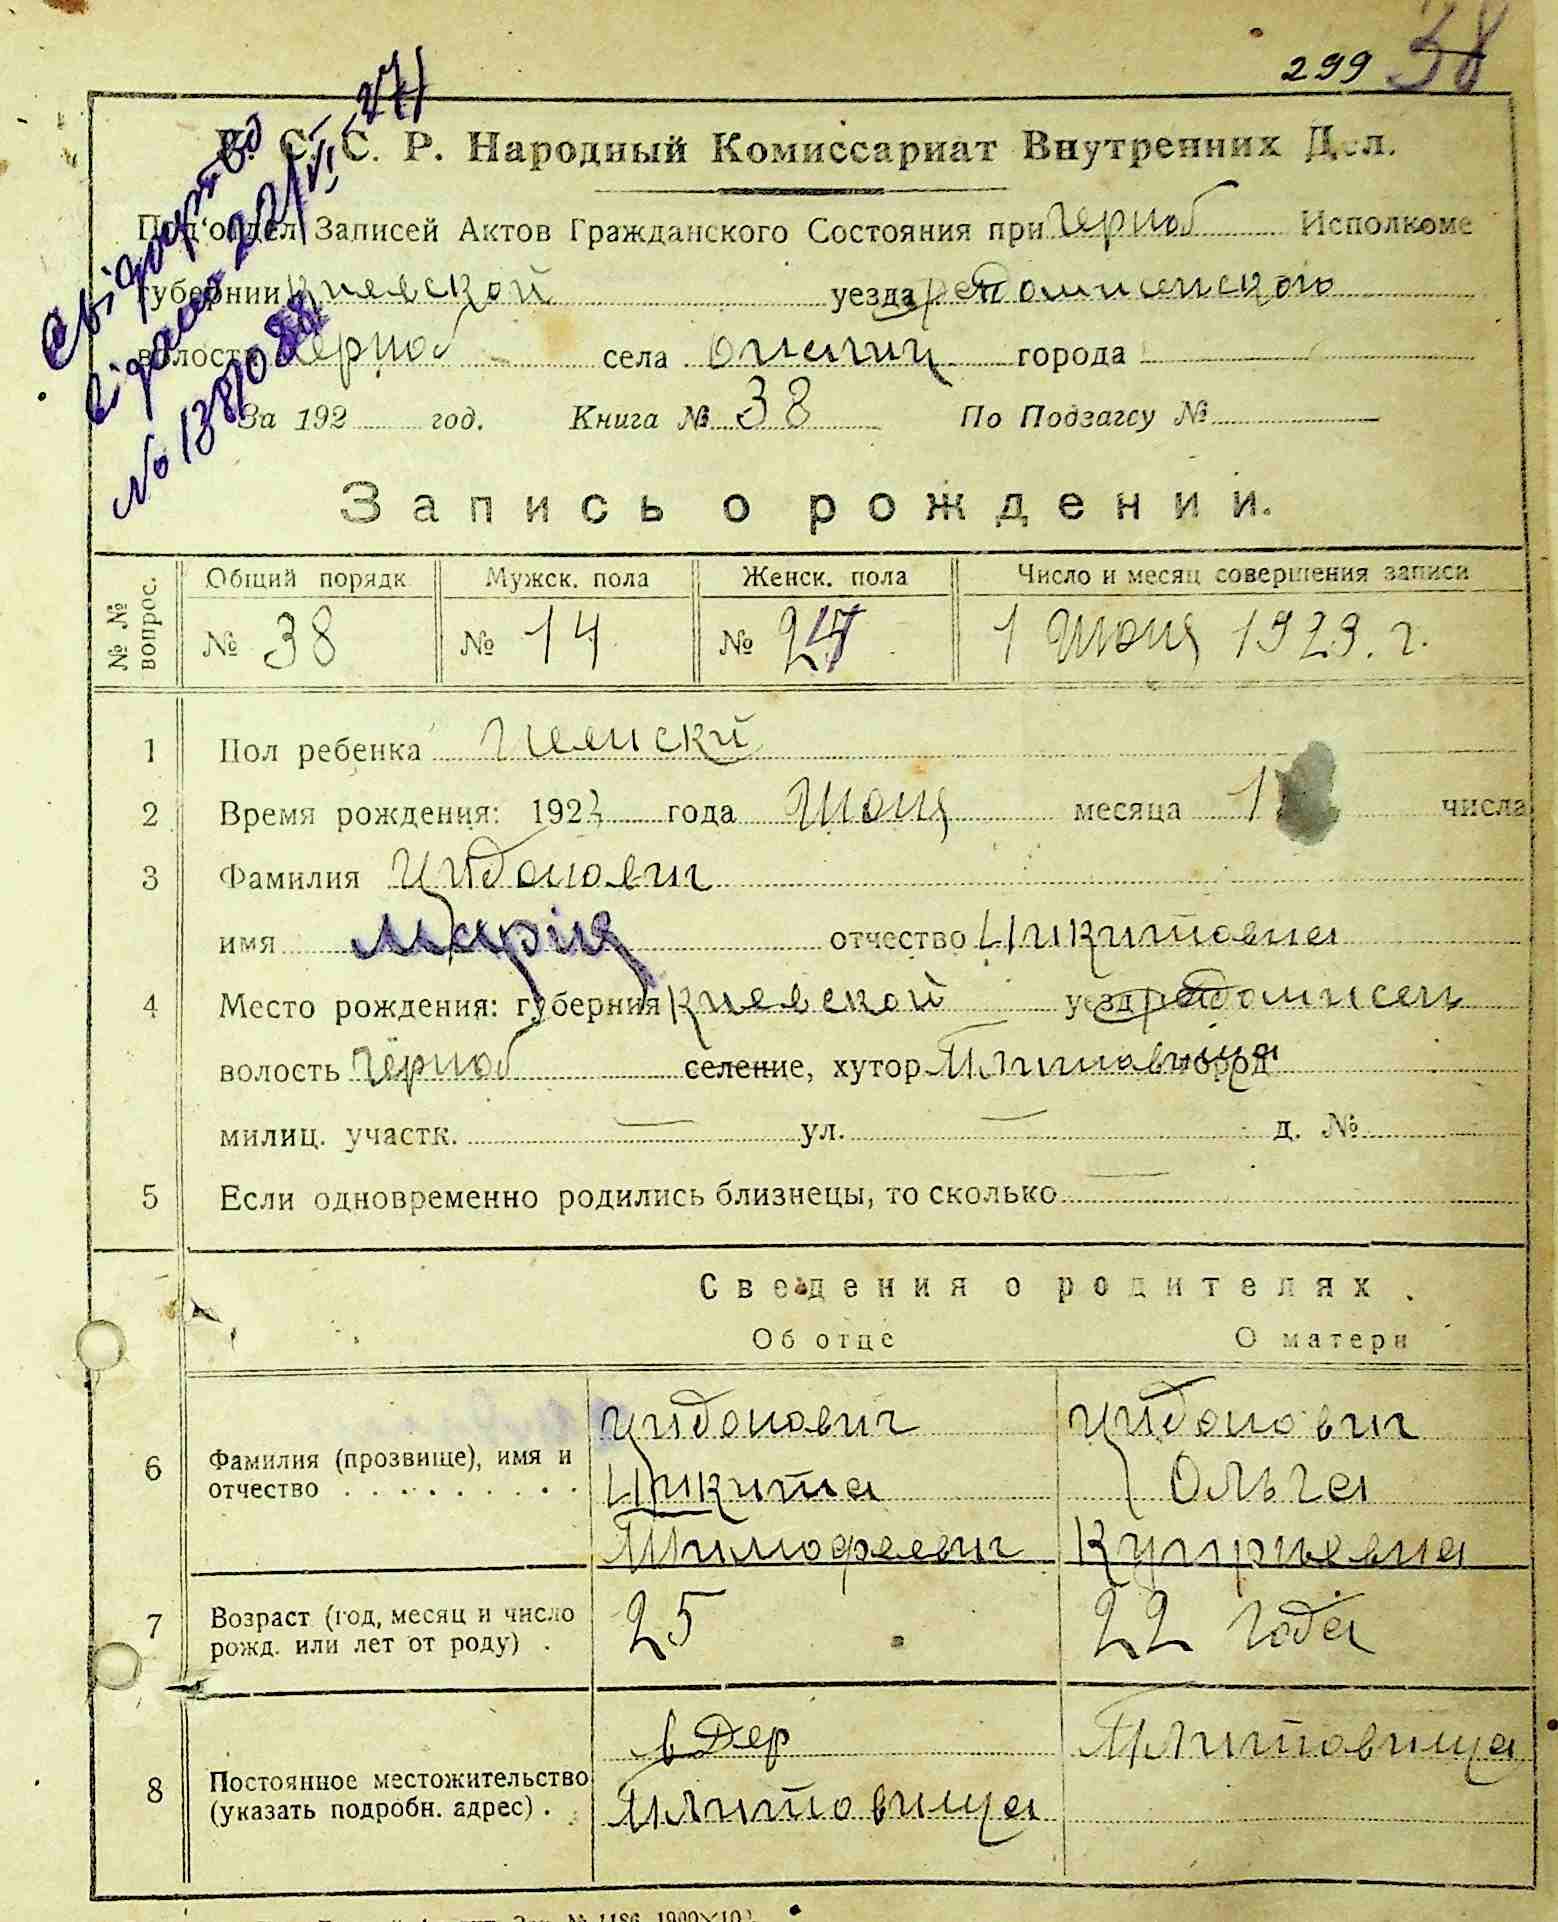 299 38
У. С. С. Р. Народный Комиссариат Внутренних Дел.
Под'отдел Записей Актов Гражданского Состояния при Черноб Исполкоме
губернии Киевской уезда
волости Черноб села города
За 192 год. Книга № 38 По Подзагсу №
№ 138088
Запись о рождении.
№№ вопрос. Общий порядк Мужск. пола Женск. пола Число и месяц совершения записи
№ 38 № 14 № 1 Июня 1923. г.
1 Пол ребенка Женски
2 Время рождения: 1923 года Июня месяца 1 числа
3 Фамилия Цидонович
имя Марія отчество Никитовна
4 Место рождения: губерния Киевской уезд
волость Черноб селение, хутор город
милиц. участк. — ул. — д. №
5 Если одновременно родились близнецы, то сколько —
Сведения о родителях.
Об отце О матери
6 Фамилия (прозвище), имя и отчество Цидонович Никита Тимофеевич Цидонович Ольга
7 Возраст (год, месяц и число рожд. или лет от роду) . 25 22 года
8 Постоянное местожительство (указать подробн. адрес) . в дер Плитовища Плитовища